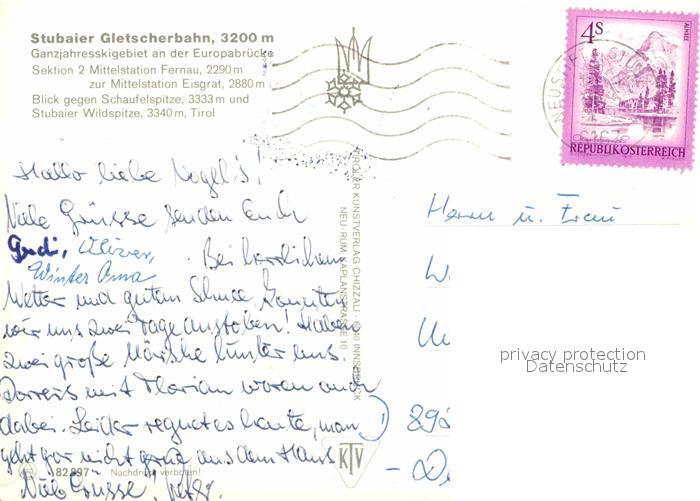 Stubaier Gletscherbahn, 3200 m
Ganzjahresskigebiet an der Europabrücke
Sektion 2 Mittelstation Fernau, 2290 m
zur Mittelstation Eisgrat, 2880 m
Blick gegen Schaufelspitze, 3333 m und
Stubaier Wildspitze, 3340 m, Tirol
4S
ALMSEE
REPUBLIK ÖSTERREICH
Hallo liebe Vogel's!
Viele Grüsse senden Euch
Gudi, Oliver,
Winter Oma
Bei herrlichem
Wetter und gutem Schnee konnten
wir uns zwei Tage austoben! Haben
zwei große Märsche hinter uns.
mit Florian waren auch
dabei. Leider regnet es heute, man
geht gar nicht gerne aus dem Haus
Viele Grüsse!
TIROLER KUNSTVERLAG CHIZZALI · 6040 INNSBRUCK
NEU-RUM, KAPLANSTRASSE 10
KTV
82 897 Nachdruck verboten!
Herrn u. Frau
W
892
privacy protection
Datenschutz